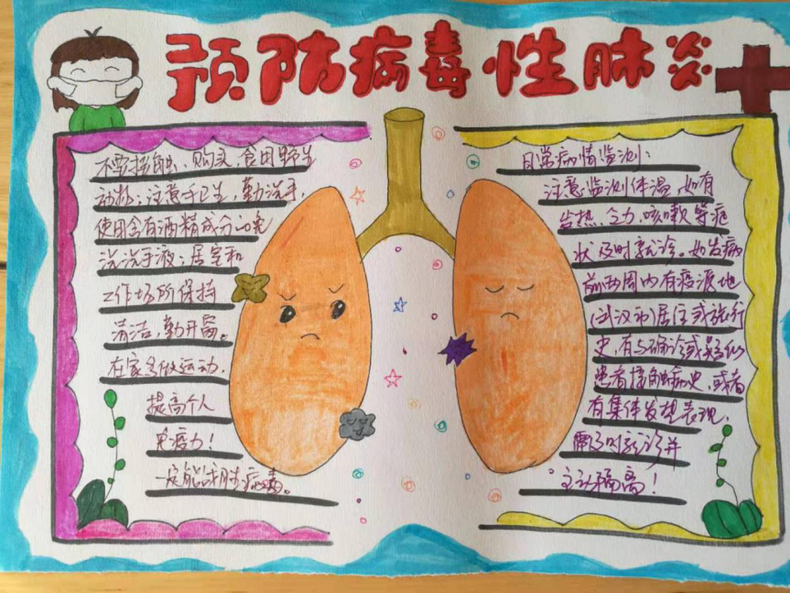 预防病毒性肺炎
不要接触、购买、食用野生
动物；注意手卫生，勤洗手，
使用含有酒精成分的免
洗洗手液；居室和
工作场所保持
清洁，勤开窗。
在家多做运动，
提高个人
免疫力！
一定能战胜病毒。
日常病情监测：
注意监测体温，如有
发热、乏力、咳嗽等症
状及时就诊。如发病
前两周内有疫源地
(武汉市)居住或旅行
史，有与确诊或疑似
患者接触病史，或者
有集体发现表现，
需及时就诊并
主动隔离！